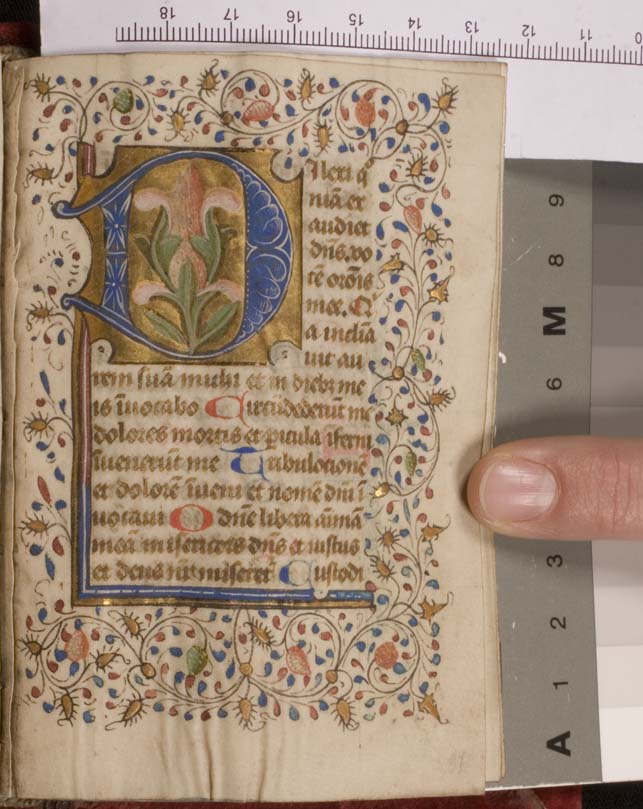 Dilexi q̄
niā ex
audiet
dn̄s. vo
cē orōis
mee. Q̄
a inclīa
uit au
rem suā michi et in dieb; me
is īuocabo Circūdederūt me
dolores mortis et picula īferni
īuenerūt me Tribulacionē
et dolorē īueni et nomē dn̄i ī
uocaui O dn̄e libera aīmā
meā misericors dn̄s et iustus
et deus nr̄ miseret᷑ Custodi
18 17 16 15 14 13 12 11 0
9
8
M
6
3
2
1
A